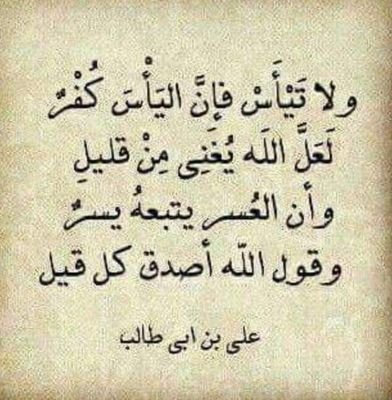 ولا تَيْأَسْ فإنَّ اليَأْسَ كُفْرٌ
لَعَلَّ اللَه يُغْنِى مِنْ قليلِ
وأن العُسر يتبعهُ يسرٌ
وقول اللّه أصدق كل قيل
على بن ابى طالب